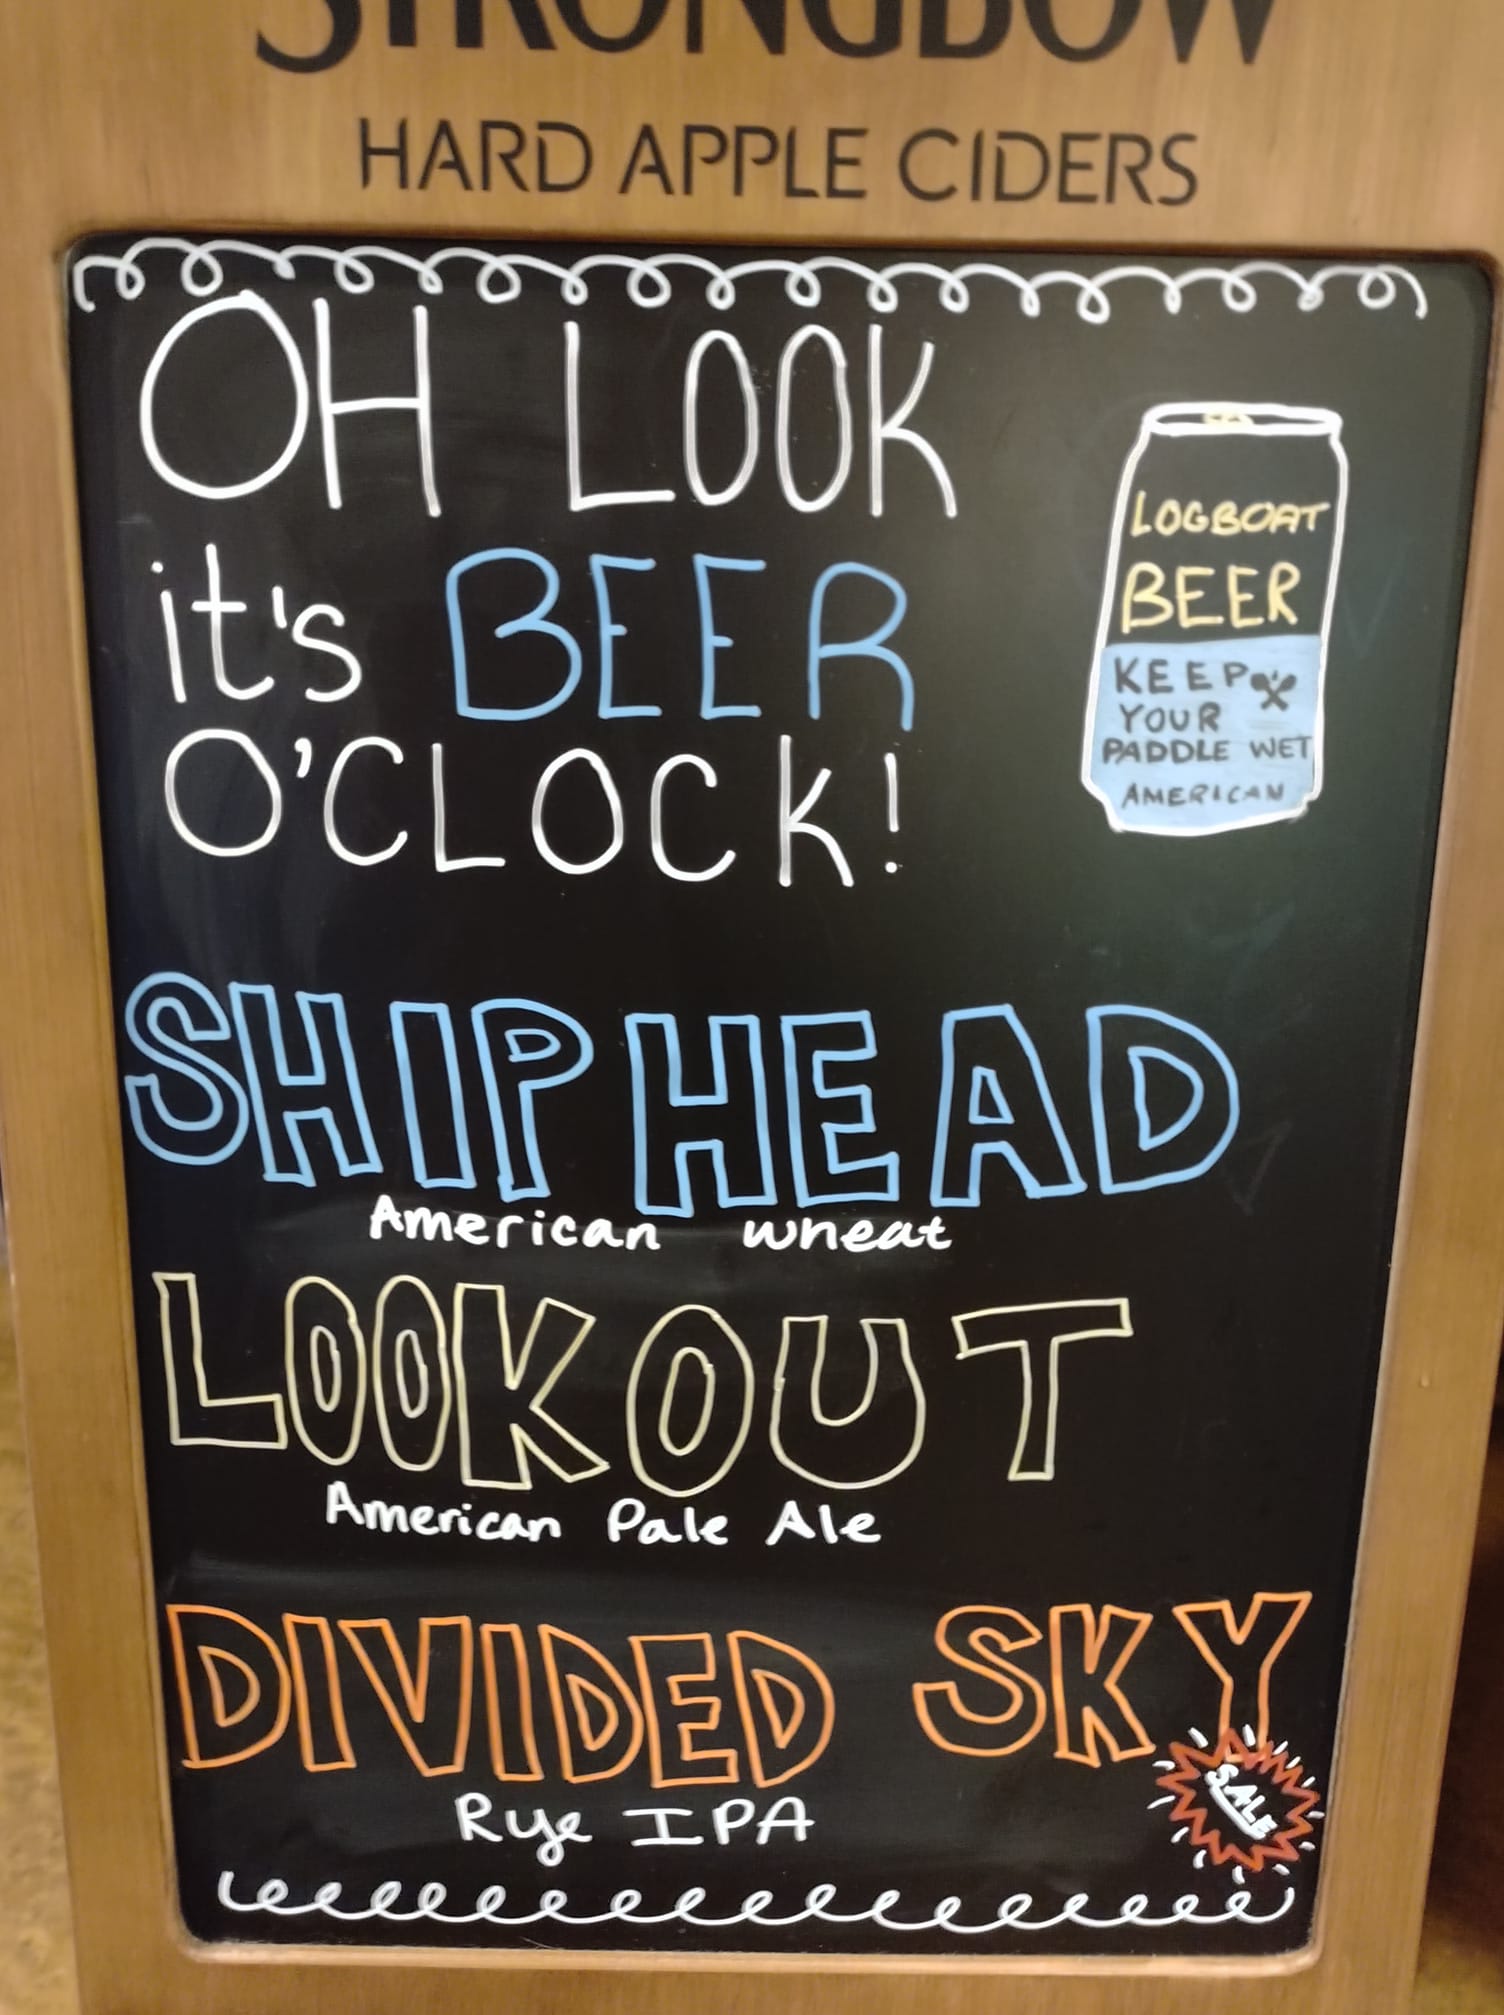 STRONGBOW
HARD APPLE CIDERS
OH LOOK
it's BEER
O'CLOCK!
LOGBOAT
BEER
KEEP
YOUR
PADDLE WET
AMERICAN
SHIPHEAD
American wheat
LOOKOUT
American Pale Ale
DIVIDED SKY
Rye IPA
SALE